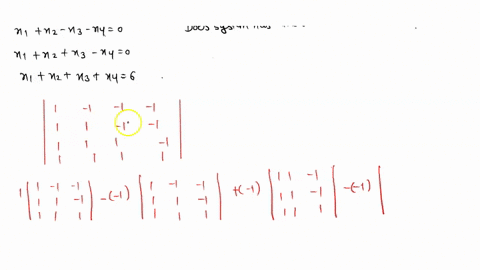 x1 + x2 - x3 - x4 = 0
x1 + x2 + x3 - x4 = 0
x1 + x2 + x3 + x4 = 6 .
| 1 -1 -1 -1 |
| 1 1 -1 -1 |
| 1 1 1 -1 |
| 1 1 1 1 |
1 | 1 -1 -1 | -(-1) | 1 -1 -1 | +(-1) | 1 1 -1 | -(-1) |
| 1 1 -1 | | 1 1 -1 | | 1 1 -1 |
| 1 1 1 | | 1 1 1 | | 1 1 1 |